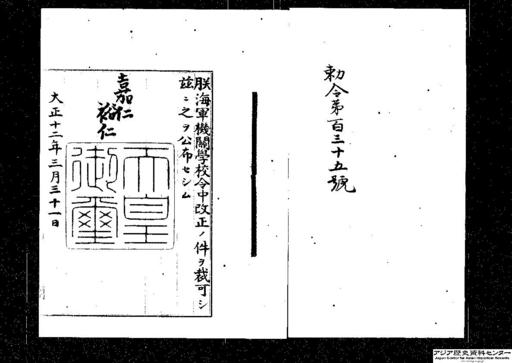 勅令第百三十五號
朕海軍機關學校令中改正ノ件ヲ裁可シ
茲ニ之ヲ公布セシム
嘉仁
裕仁
天皇御璽
大正十二年三月三十一日
アジア歴史資料センター
Japan Center for Asian Historical Records